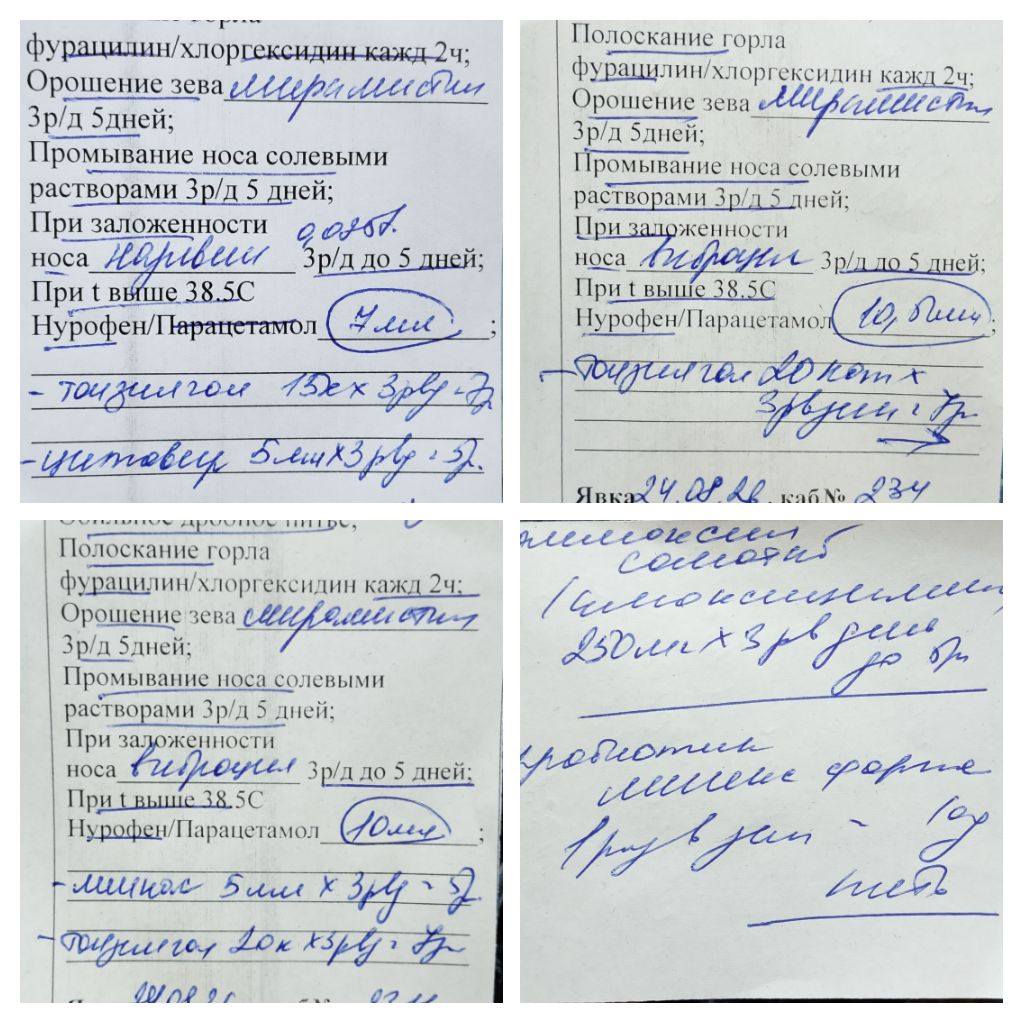 фурацилин/хлоргексидин кажд 2ч;
Орошение зева мирамистин
3р/д 5дней;
Промывание носа солевыми
растворами 3р/д 5 дней;
При заложенности 0,025%.
носа називин 3р/д до 5 дней;
При t выше 38.5С
Нурофен/Парацетамол 7 мл;
- тонзилгон 15к х 3рвд - 7д
- цитовир 5мл х 3рвд - 5д.
Полоскание горла
фурацилин/хлоргексидин кажд 2ч;
Орошение зева мирамистин
3р/д 5дней;
Промывание носа солевыми
растворами 3р/д 5 дней;
При заложенности
носа виброцил 3р/д до 5 дней;
При t выше 38.5С
Нурофен/Парацетамол 10,5мл;
- тонзилгон 20кап х
3рвдень - 7д
Явка 24.08.2 . каб№ 234
Обильное дробное питье;
Полоскание горла
фурацилин/хлоргексидин кажд 2ч;
Орошение зева мирамистин
3р/д 5дней;
Промывание носа солевыми
растворами 3р/д 5 дней;
При заложенности
носа виброцил 3р/д до 5 дней;
При t выше 38.5С
Нурофен/Парацетамол 10мл;
5мл х 3рвд - 5д.
- тонзилгон 20к х 3рвд - 7д
солютаб
(амоксициллин
250мг х 3 рв день
до 5д
форте
1 раз в день -
пить